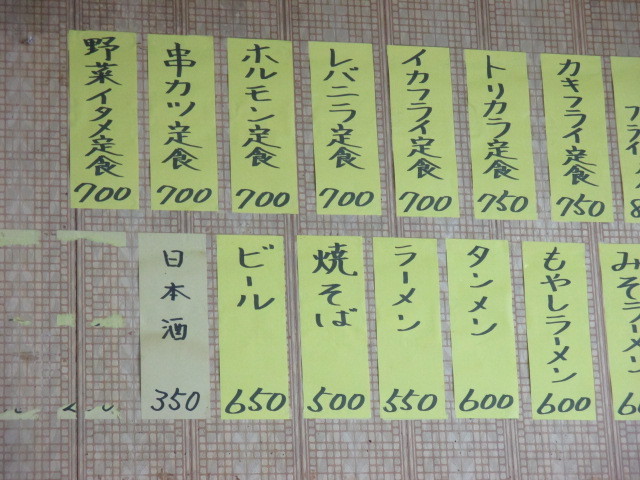 野菜イタメ定食
700
串カツ定食
700
ホルモン定食
700
レバニラ定食
700
イカフライ定食
700
トリカラ定食
750
カキフライ定食
750
日本酒
350
ビール
650
焼そば
500
ラーメン
550
タンメン
600
もやしラーメン
600
みそラーメン